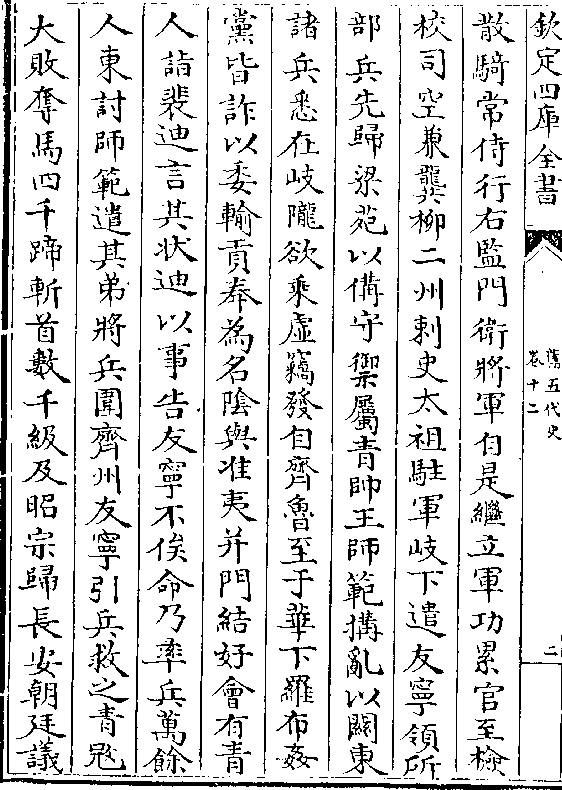 欽定四庫全書
舊五代史
卷十二
二
散騎常侍行右監門衛將軍自是繼立軍功累官至檢
校司空兼龔柳二州刺史太祖駐軍岐下遣友寧領所
部兵先歸梁苑以備守禦屬青帥王師範搆亂以關東
諸兵悉在岐隴欲乘虛竊發自齊魯至于華下羅布姦
黨皆詐以委輸貢奉為名隂與淮夷并門結好會有青
人詣裴迪言其状迪以事告友寧不俟命乃率兵萬餘
人東討師範遣其弟將兵圍齊州友寧引兵救之青冦
大敗奪馬四千蹄斬首數千級及昭宗歸長安朝廷議